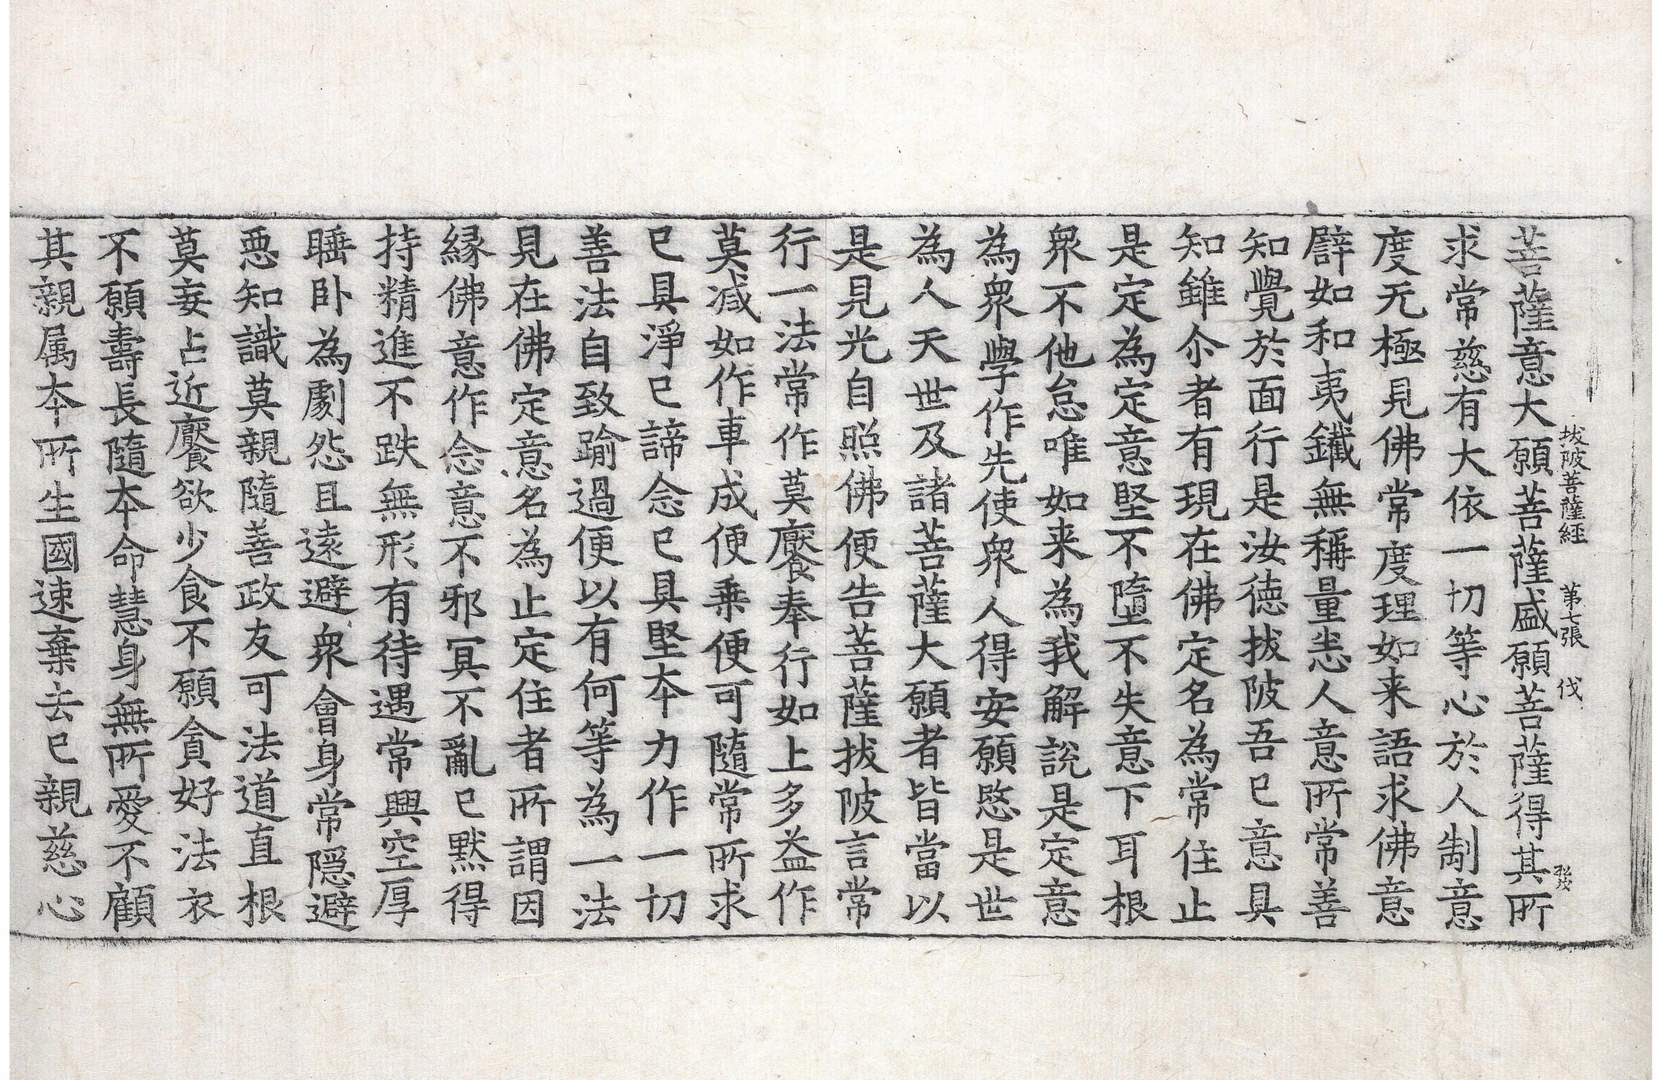 菩薩意大願菩薩盛願菩薩得其所
拔陂菩薩経　第七張　伐
求常慈有大依一切等心於人制意
度无極見佛常度理如来語求佛意
辟如和夷鐵無稱量恚人意所常善
知覺於面行是汝德拔陂吾已意具
知雖尒者有現在佛定名為常住止
是定為定意堅不墮不失意下耳根
眾不他怠唯如来為我解說是定意
為眾學作先使眾人得安願愍是世
為人天世及諸菩薩大願者皆當以
是見光自照佛便告菩薩拔陂言常
行一法常作莫廢奉行如上多益作
莫减如作車成便乗便可隨常所求
已具淨已諦念已具堅夲力作一切
善法自致踰過便以有何等為一法
見在佛定意名為止定住者所謂因
縁佛意作念意不邪冥不亂已默得
持精進不跌無形有待遇常興空厚
睡卧為劇怨且遠避眾會身常隱避
悪知識莫親隨善政友可法道直根
莫妄占近饜欲少食不願貪好法衣
不願壽長隨夲命慧身無所愛不顧
其親属夲所生國速棄去已親慈心